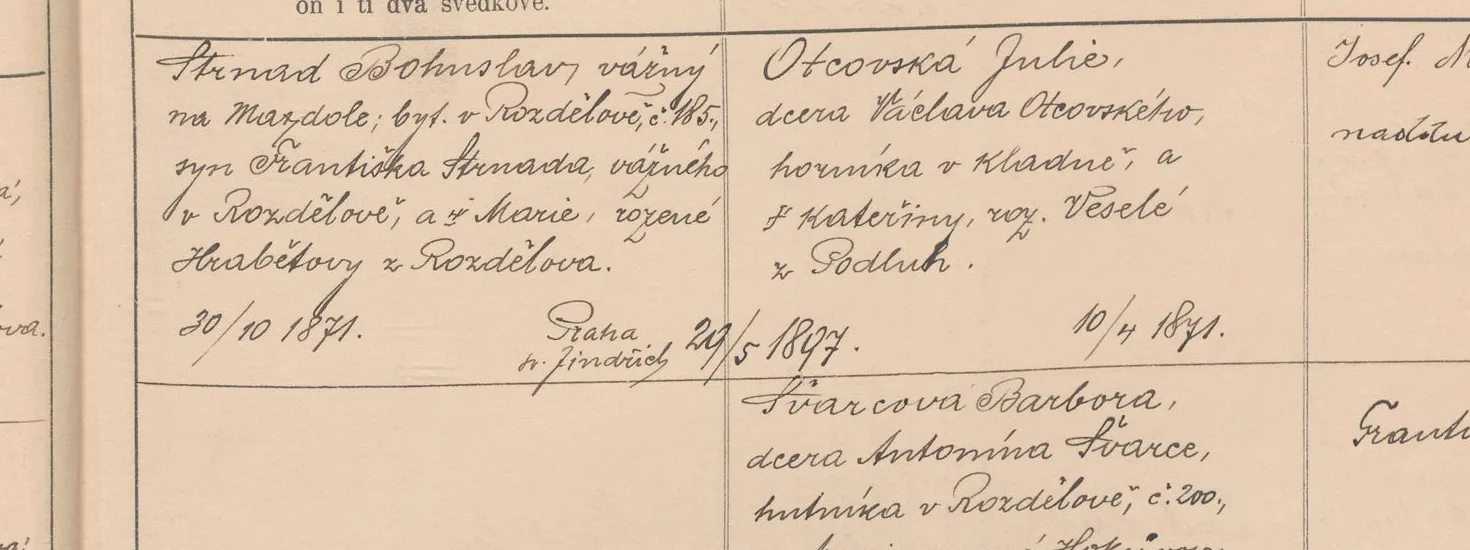 on i ti dva svědkové.
Strnad Bohuslav, vážný
na Mayzdole; byt. v Rozdělově, č. 185.,
syn Františka Strnada, vážného
v Rozdělově, a † Marie, rozené
Hrabětovy z Rozdělova.
30/10 1871.
Praha
sv. Jindřich
29/5 1897.
Otcovská Julie,
dcera Václava Otcovského,
horníka v Kladně, a
† Kateřiny, roz. Veselé
z Podluh.
10/4 1871.
Josef.
Švarcová Barbora,
dcera Antonína Švarce,
hutníka v Rozdělově, č. 200.,
ova.